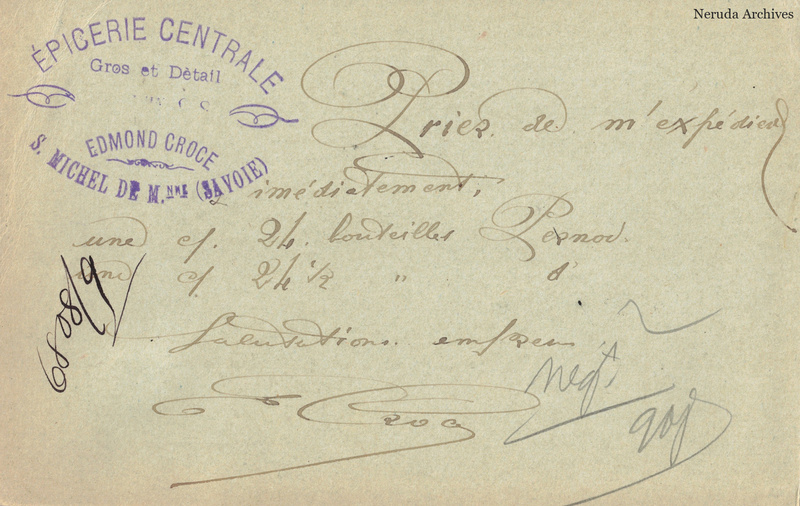 Neruda Archives
ÉPICERIE CENTRALE
Gros et Détail
EDMOND CROCE
S. MICHEL DE M.NNE (SAVOIE)
Priez de m'expédier
imédiatement,
une c/. 24 bouteilles Pernod.
une c/ 24 1/2 " d°
Salutations empres
E Croce
6808/9
negt.